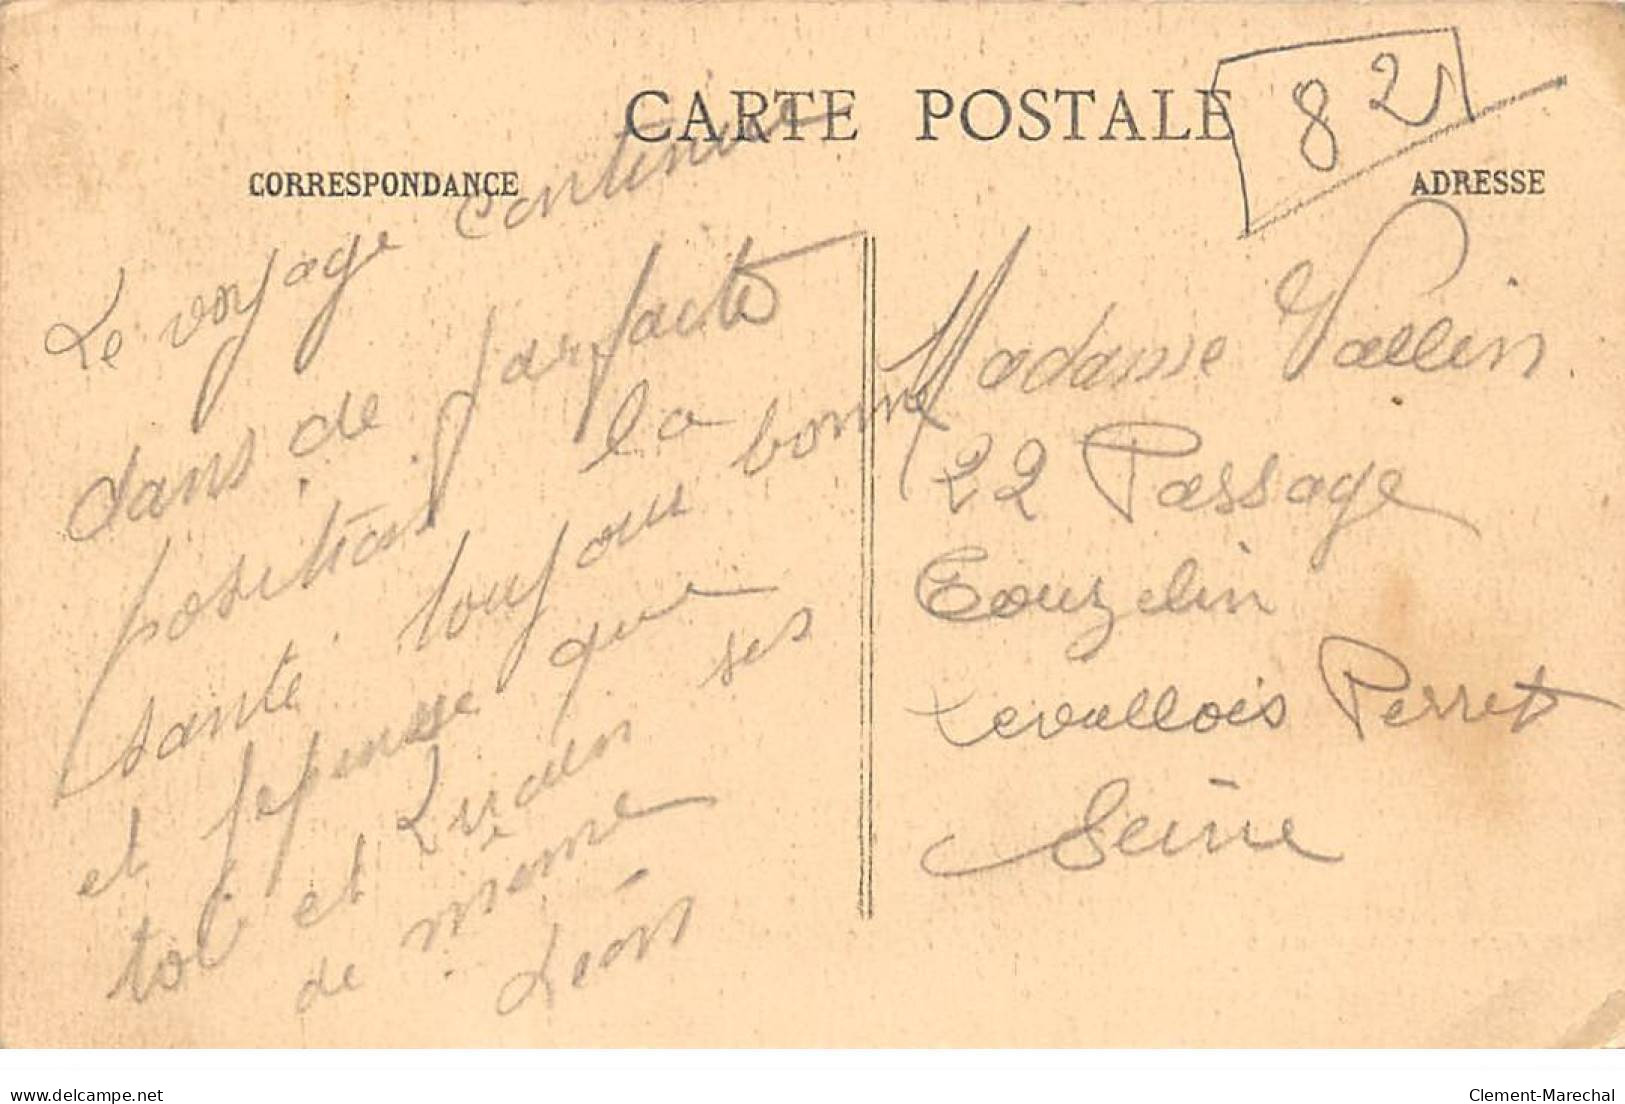 CARTE POSTALE
82
CORRESPONDANCE
ADRESSE
Le voyage continue
dans de parfaite
position la
santé toujours bonne
et je pense que
toi et Lucien ses
de meme
Léon
Madame Vallin
22 Passage
Eouzelin
Levallois Perret
Seine
delcampe.net
Clement-Marechal